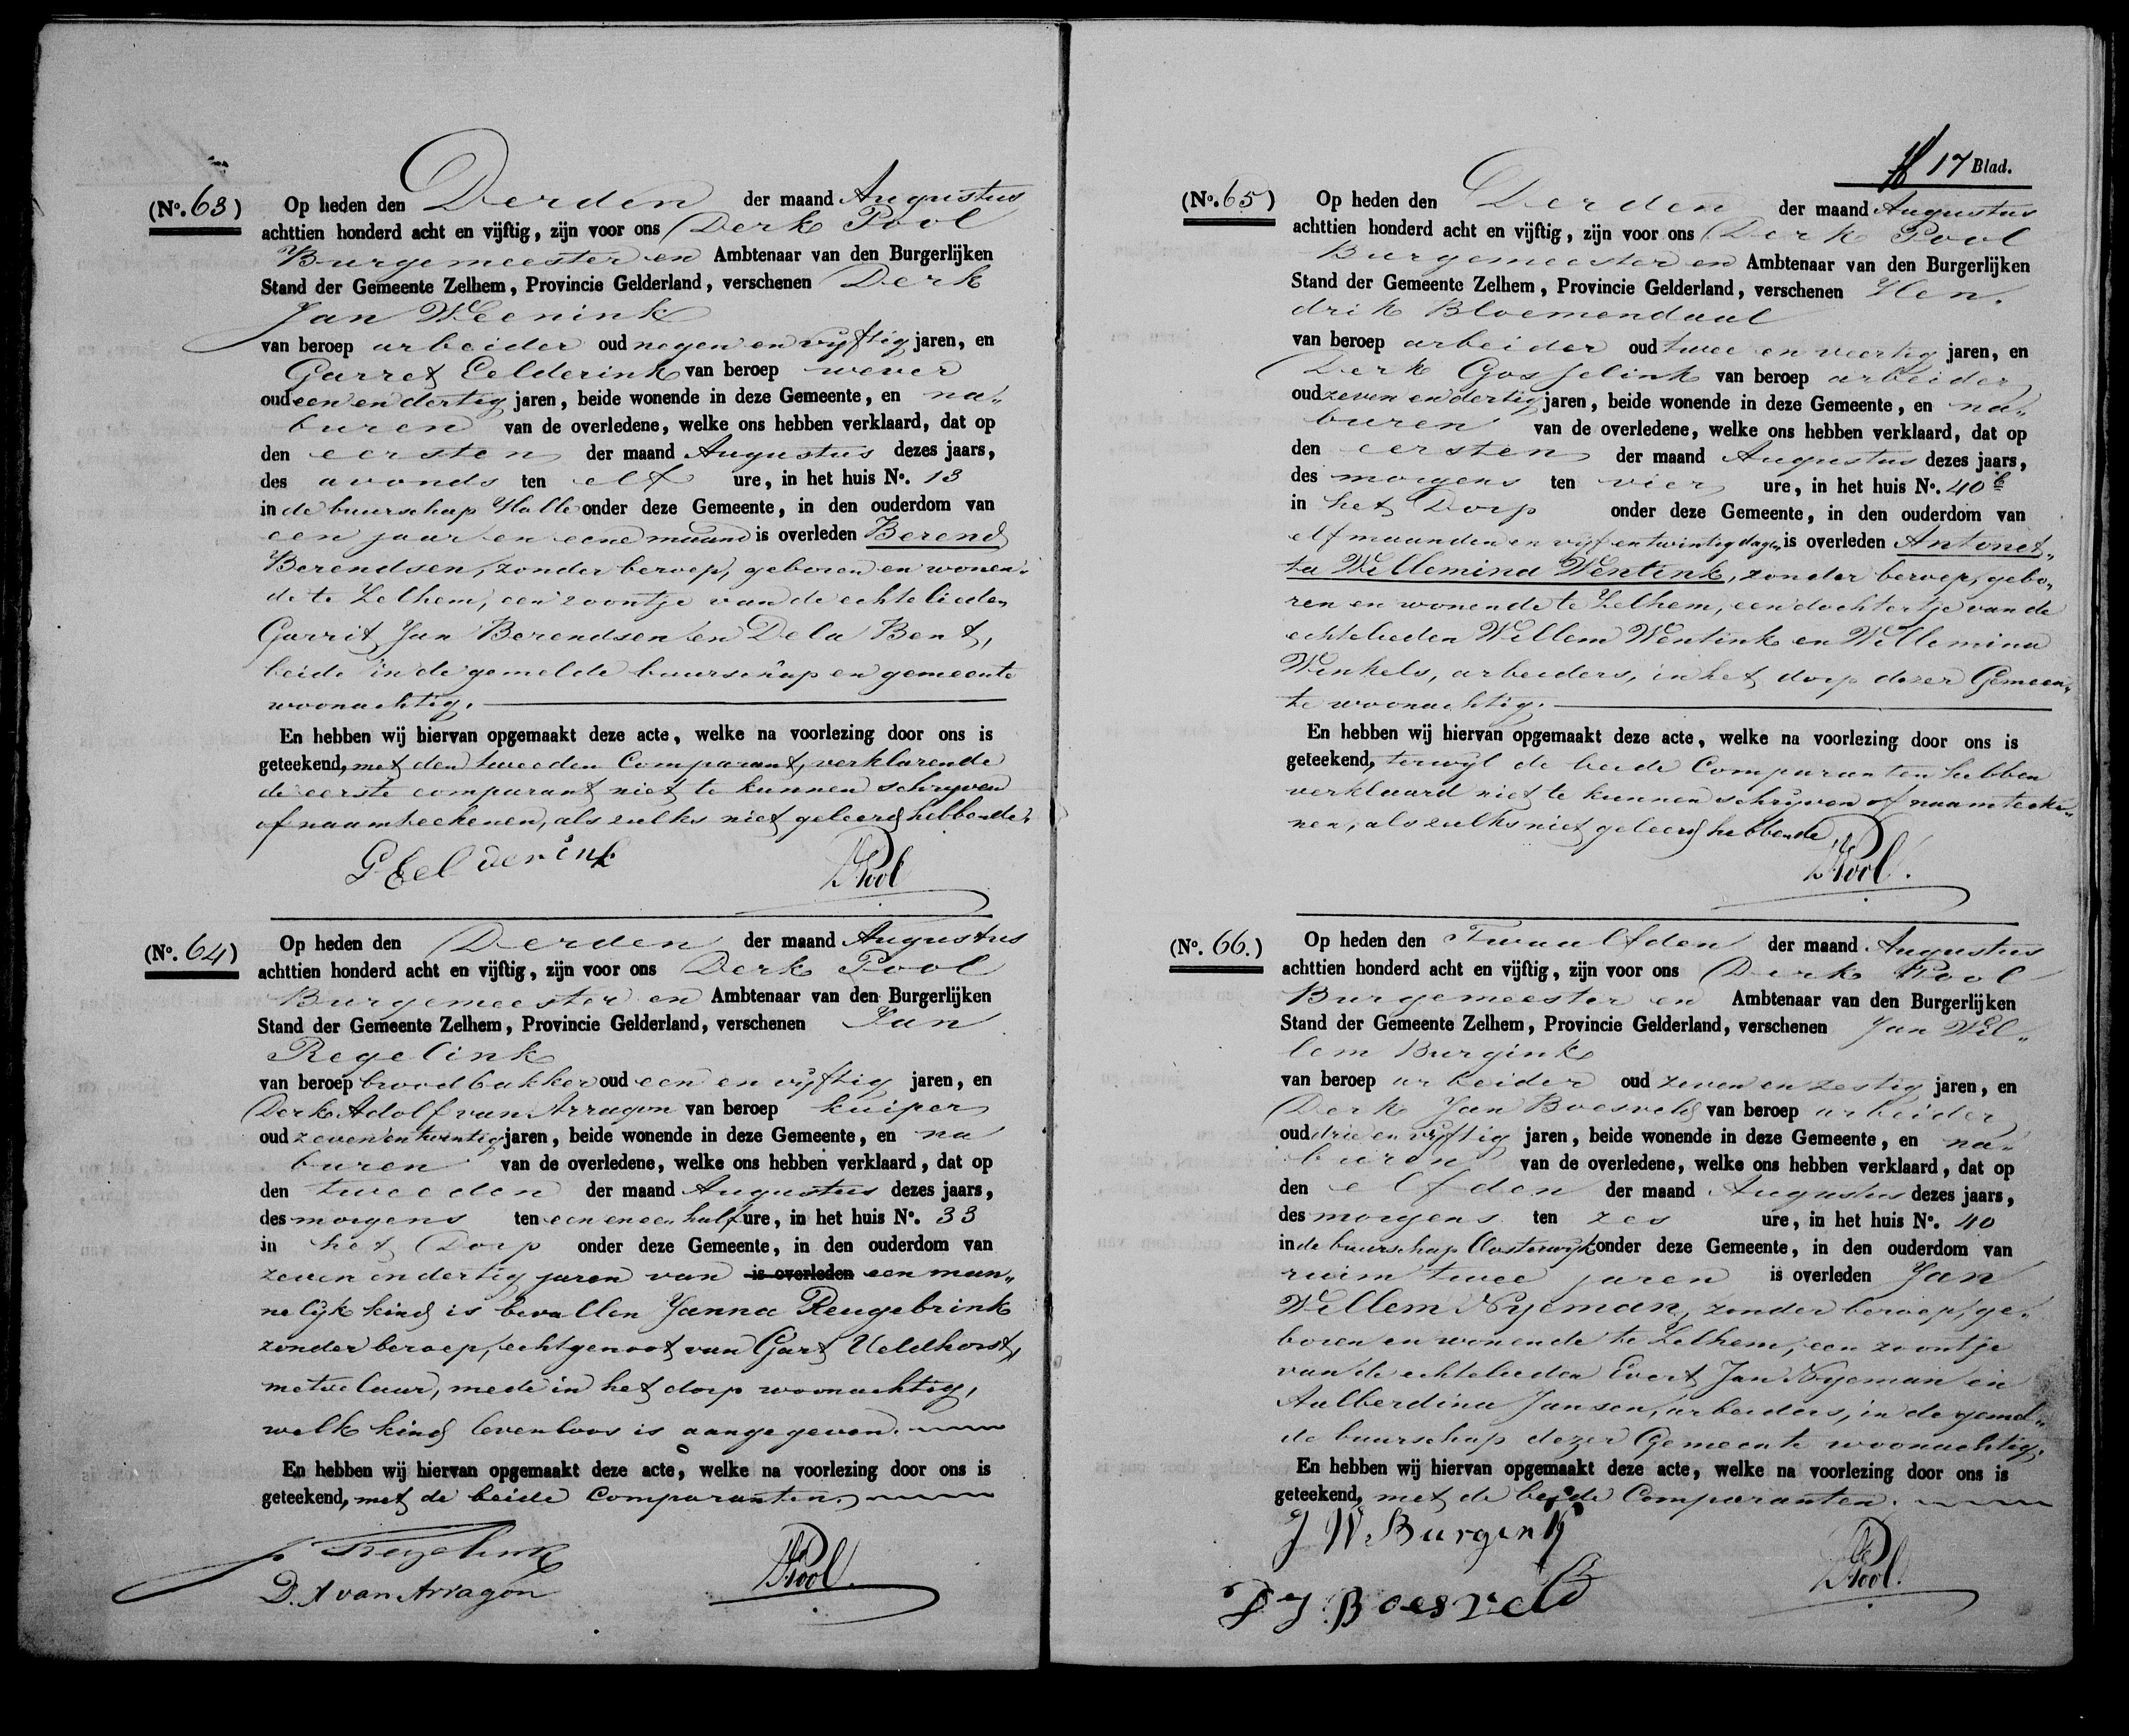 (No. 63) Op heden den Derden der maand Augustus
achttien honderd acht en vijftig, zijn voor ons Derk Pool
Burgemeester en Ambtenaar van den Burgerlijken
Stand der Gemeente Zelhem, Provincie Gelderland, verschenen Derk
Jan Weenink
van beroep arbeider oud negen en vyftig jaren, en
Garret Eelderink van beroep wever
oud een en dertig jaren, beide wonende in deze Gemeente, en na„
buren van de overledene, welke ons hebben verklaard, dat op
den eersten der maand Augustus dezes jaars,
des avonds ten elf ure, in het huis No. 13
in de buurschap Halle onder deze Gemeente, in den ouderdom van
een jaar en eene maand is overleden Berend
Berendsen, zonder beroep, geboren en wonen„
de te Zelhem, een zoontje van de echtelieden
Garrit Jan Berendsen en Dela Bent,
beide in de gemelde buurschap en gemeente
woonachtig.
En hebben wij hiervan opgemaakt deze acte, welke na voorlezing door ons is
geteekend, met den tweeden Comparant, verklarende
de eerste comparant niet te kunnen schryven
of naamteekenen, als zulks niet geleerd hebbende.
G Eelderink DPool
(No. 64) Op heden den Derden der maand Augustus
achttien honderd acht en vijftig, zijn voor ons Derk Pool
Burgemeester en Ambtenaar van den Burgerlijken
Stand der Gemeente Zelhem, Provincie Gelderland, verschenen Jan
Regelink
van beroep broodbakker oud een en vyftig jaren, en
Derk Adolf van Arragon van beroep kuiper
oud zeven en twintig jaren, beide wonende in deze Gemeente, en na
buren van de overledene, welke ons hebben verklaard, dat op
den tweeden der maand Augustus dezes jaars,
des morgens ten een en een half ure, in het huis No. 33
in het Dorp onder deze Gemeente, in den ouderdom van
zeven en dertig jaren van is overleden een man„
nelyk kind is bevallen Janna Reugebrink
zonder beroep, echtgenoot van Gart Veldhorst,
metselaar, mede in het dorp woonachtig,
welk kind levenloos is aangegeven.
En hebben wij hiervan opgemaakt deze acte, welke na voorlezing door ons is
geteekend, met de beide Comparanten.
J Regelink DPool.
D. A van Arragon
17 Blad.
(No. 65) Op heden den Derden der maand Augustus
achttien honderd acht en vijftig, zijn voor ons Derk Pool
Burgemeester en Ambtenaar van den Burgerlijken
Stand der Gemeente Zelhem, Provincie Gelderland, verschenen Hen„
drik Bloemendaal
van beroep arbeider oud twee en veertig jaren, en
Derk Gosselink van beroep arbeider
oud zeven en dertig jaren, beide wonende in deze Gemeente, en na„
buren van de overledene, welke ons hebben verklaard, dat op
den eersten der maand Augustus dezes jaars,
des morgens ten vier ure, in het huis No. 40 b
in het Dorp onder deze Gemeente, in den ouderdom van
elf maanden en vyf en twintig dagen is overleden Antonet„
ta Willemina Wentink, zonder beroep, gebo„
ren en wonende te Zelhem, een dochtertje van de
echtelieden Willem Wentink en Willemina
Winkels, arbeiders, in het dorp dezer Gemeen„
te woonachtig.
En hebben wij hiervan opgemaakt deze acte, welke na voorlezing door ons is
geteekend, terwyl de beide Comparanten hebben
verklaard niet te kunnen schryven of naamteeke„
nen, als zulks niet geleerd hebbende.
DPool.
(No. 66.) Op heden den Twaalfden der maand Augustus
achttien honderd acht en vijftig, zijn voor ons Derk Pool
Burgemeester en Ambtenaar van den Burgerlijken
Stand der Gemeente Zelhem, Provincie Gelderland, verschenen Jan Wil„
lem Burgink
van beroep arbeider oud zeven en zestig jaren, en
Derk Jan Boesveld van beroep arbeider
oud drie en vyftig jaren, beide wonende in deze Gemeente, en na„
buren van de overledene, welke ons hebben verklaard, dat op
den elfden der maand Augustus dezes jaars,
des morgens ten zes ure, in het huis No. 40
in de buurschap Oosterwyk onder deze Gemeente, in den ouderdom van
ruim twee jaren is overleden Jan
Willem Nyeman, zonder beroep, ge„
boren en wonende te Zelhem, een zoontje
van de echtelieden Evert Jan Nyeman en
Aalberdina Jansen, arbeiders, in de gemel„
de buurschap dezer Gemeente woonachtig.
En hebben wij hiervan opgemaakt deze acte, welke na voorlezing door ons is
geteekend, met de beide Comparanten.
J W Burgink
DPool.
D J Boesveld